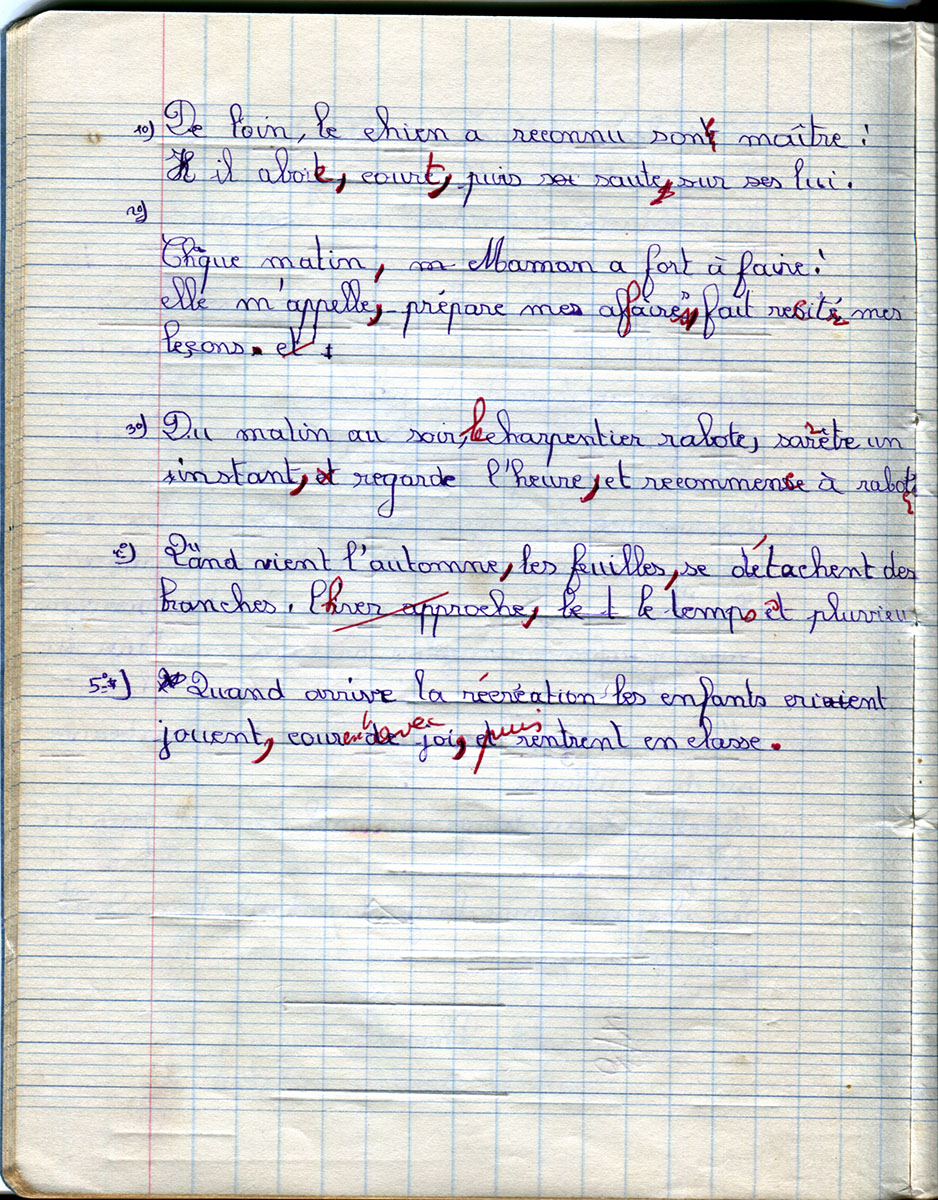 1o) De loin, le chien a reconnu son maître :
il aboit, court, puis saute, sur ses lui.
2o)
Chaque matin, Maman a fort à faire :
elle m'appelle, prépare mes affaires, fait resité mes
leçons. et
3o) Du matin au soir, le charpentier rabote, sarrête un
instant, et regarde l'heure, et recommence à rabote
Quand vient l'automne, les feuilles, se détachent des
branches. approche, le le temps et pluvieu
5o) Quand arrive la récréation les enfants criaient
jouent, courent avec joie, puis rentrent en classe.